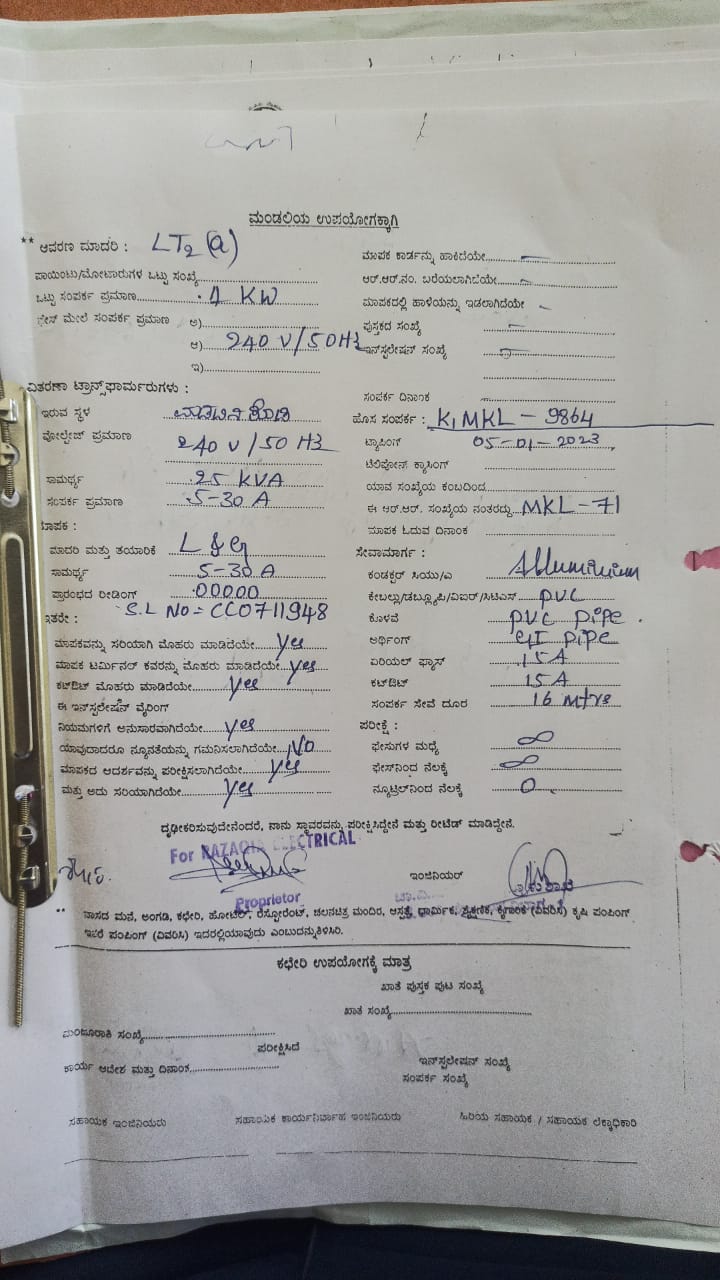 ಮಂಡಲಿಯ ಉಪಯೋಗಕ್ಕಾಗಿ
** ಆವರಣ ಮಾದರಿ : LT2 (a)
ಪಾಯಿಂಟು/ಮೋಟಾರುಗಳ ಒಟ್ಟು ಸಂಖ್ಯೆ
ಒಟ್ಟು ಸಂಪರ್ಕ ಪ್ರಮಾಣ
KW
ಫೇಸ್ ಮೇಲೆ ಸಂಪರ್ಕ ಪ್ರಮಾಣ ಅ)
ಆ) 240 V/50HZ
ಇ)
ವಿತರಣಾ ಟ್ರಾನ್ಸ್‌ಫಾರ್ಮರುಗಳು :
ಇರುವ ಸ್ಥಳ
ವೋಲ್ಟೇಜ್ ಪ್ರಮಾಣ 240 V/50 HZ
ಸಾಮರ್ಥ್ಯ 25 KVA
ಸಂಪರ್ಕ ಪ್ರಮಾಣ 5-30 A
ಮಾಪಕ :
ಮಾದರಿ ಮತ್ತು ತಯಾರಿಕೆ L & G
ಸಾಮರ್ಥ್ಯ 5-30 A
ಪ್ರಾರಂಭದ ರೀಡಿಂಗ್ 00000
ಇತರೇ : S.L No = CC0711948
ಮಾಪಕವನ್ನು ಸರಿಯಾಗಿ ಮೊಹರು ಮಾಡಿದೆಯೇ yes
ಮಾಪಕ ಟರ್ಮಿನಲ್ ಕವರನ್ನು ಮೊಹರು ಮಾಡಿದೆಯೇ yes
ಕಟ್‌ಔಟ್ ಮೊಹರು ಮಾಡಿದೆಯೇ yes
ಈ ಇನ್‌ಸ್ಟಲೇಷನ್ ವೈರಿಂಗ್
ನಿಯಮಗಳಿಗೆ ಅನುಸಾರವಾಗಿದೆಯೇ yes
ಯಾವುದಾದರೂ ನ್ಯೂನತೆಯನ್ನು ಗಮನಿಸಲಾಗಿದೆಯೇ No
ಮಾಪಕದ ಆದರ್ಶವನ್ನು ಪರೀಕ್ಷಿಸಲಾಗಿದೆಯೇ yes
ಮತ್ತು ಅದು ಸರಿಯಾಗಿದೆಯೇ yes
ಮಾಪಕ ಕಾರ್ಡನ್ನು ಹಾಕಿದೆಯೇ
ಆರ್.ಆರ್.ನಂ. ಬರೆಯಲಾಗಿದೆಯೇ
ಮಾಪಕದಲ್ಲಿ ಹಾಳೆಯನ್ನು ಇಡಲಾಗಿದೆಯೇ
ಪುಸ್ತಕದ ಸಂಖ್ಯೆ
ಇನ್‌ಸ್ಟಲೇಷನ್ ಸಂಖ್ಯೆ
ಸಂಪರ್ಕ ದಿನಾಂಕ
ಹೊಸ ಸಂಪರ್ಕ : K,MKL - 9864
ಟ್ಯಾಪಿಂಗ್ 05-01-2023
ಟೆಲಿಫೋನ್ ಕ್ಯಾಸಿಂಗ್
ಯಾವ ಸಂಖ್ಯೆಯ ಕಂಬದಿಂದ
ಈ ಆರ್.ಆರ್. ಸಂಖ್ಯೆಯ ನಂತರದ್ದು MKL-71
ಮಾಪಕ ಓದುವ ದಿನಾಂಕ
ಸೇವಾಮಾರ್ಗ :
ಕಂಡಕ್ಟರ್ ಸಿಯು/ಎ Alluminium
ಕೇಬಲ್ಲು/ಡಬ್ಲ್ಯೂಪಿ/ವಿಐಆರ್/ಸಿಟಿಎಸ್ PVC
ಕೊಳವೆ PVC Pipe
ಅರ್ಥಿಂಗ್ GI Pipe
ಏರಿಯಲ್ ಫ್ಯೂಸ್ 15A
ಕಟ್‌ಔಟ್ 15 A
ಸಂಪರ್ಕ ಸೇವೆ ದೂರ 16 mtrs
ಪರೀಕ್ಷೆ :
ಫೇಸುಗಳ ಮಧ್ಯೆ ∞
ಫೇಸ್‌ನಿಂದ ನೆಲಕ್ಕೆ ∞
ನ್ಯೂಟ್ರಲ್‌ನಿಂದ ನೆಲಕ್ಕೆ 0
ದೃಢೀಕರಿಸುವುದೇನೆಂದರೆ, ನಾನು ಸ್ಥಾವರವನ್ನು ಪರೀಕ್ಷಿಸಿದ್ದೇನೆ ಮತ್ತು ರೀಟೆಡ್ ಮಾಡಿದ್ದೇನೆ.
For RAZAQIA ELECTRICAL
ಇಂಜಿನಿಯರ್
Proprietor
** ವಾಸದ ಮನೆ, ಅಂಗಡಿ, ಕಛೇರಿ, ಹೋಟೆಲ್, ರೆಸ್ಟೋರೆಂಟ್, ಚಲನಚಿತ್ರ ಮಂದಿರ, ಆಸ್ಪತ್ರೆ, ಧಾರ್ಮಿಕ, ಶೈಕ್ಷಣಿಕ, ಕೈಗಾರಿಕೆ (ವಿವರಿಸಿ) ಕೃಷಿ ಪಂಪಿಂಗ್
ಇತರೆ ಪಂಪಿಂಗ್ (ವಿವರಿಸಿ) ಇದರಲ್ಲಿಯಾವುದು ಎಂಬುದನ್ನುತಿಳಿಸಿರಿ.
ಕಛೇರಿ ಉಪಯೋಗಕ್ಕೆ ಮಾತ್ರ
ಖಾತೆ ಪುಸ್ತಕ ಪುಟ ಸಂಖ್ಯೆ
ಖಾತೆ ಸಂಖ್ಯೆ
ಮಂಜೂರಾತಿ ಸಂಖ್ಯೆ
ಪರೀಕ್ಷಿಸಿದೆ
ಕಾರ್ಯ ಆದೇಶ ಮತ್ತು ದಿನಾಂಕ
ಇನ್‌ಸ್ಟಲೇಷನ್ ಸಂಖ್ಯೆ
ಸಂಪರ್ಕ ಸಂಖ್ಯೆ
ಸಹಾಯಕ ಇಂಜಿನಿಯರು ಸಹಾಯಕ ಕಾರ್ಯನಿರ್ವಾಹ ಇಂಜಿನಿಯರು ಹಿರಿಯ ಸಹಾಯಕ / ಸಹಾಯಕ ಲೆಕ್ಕಾಧಿಕಾರಿ